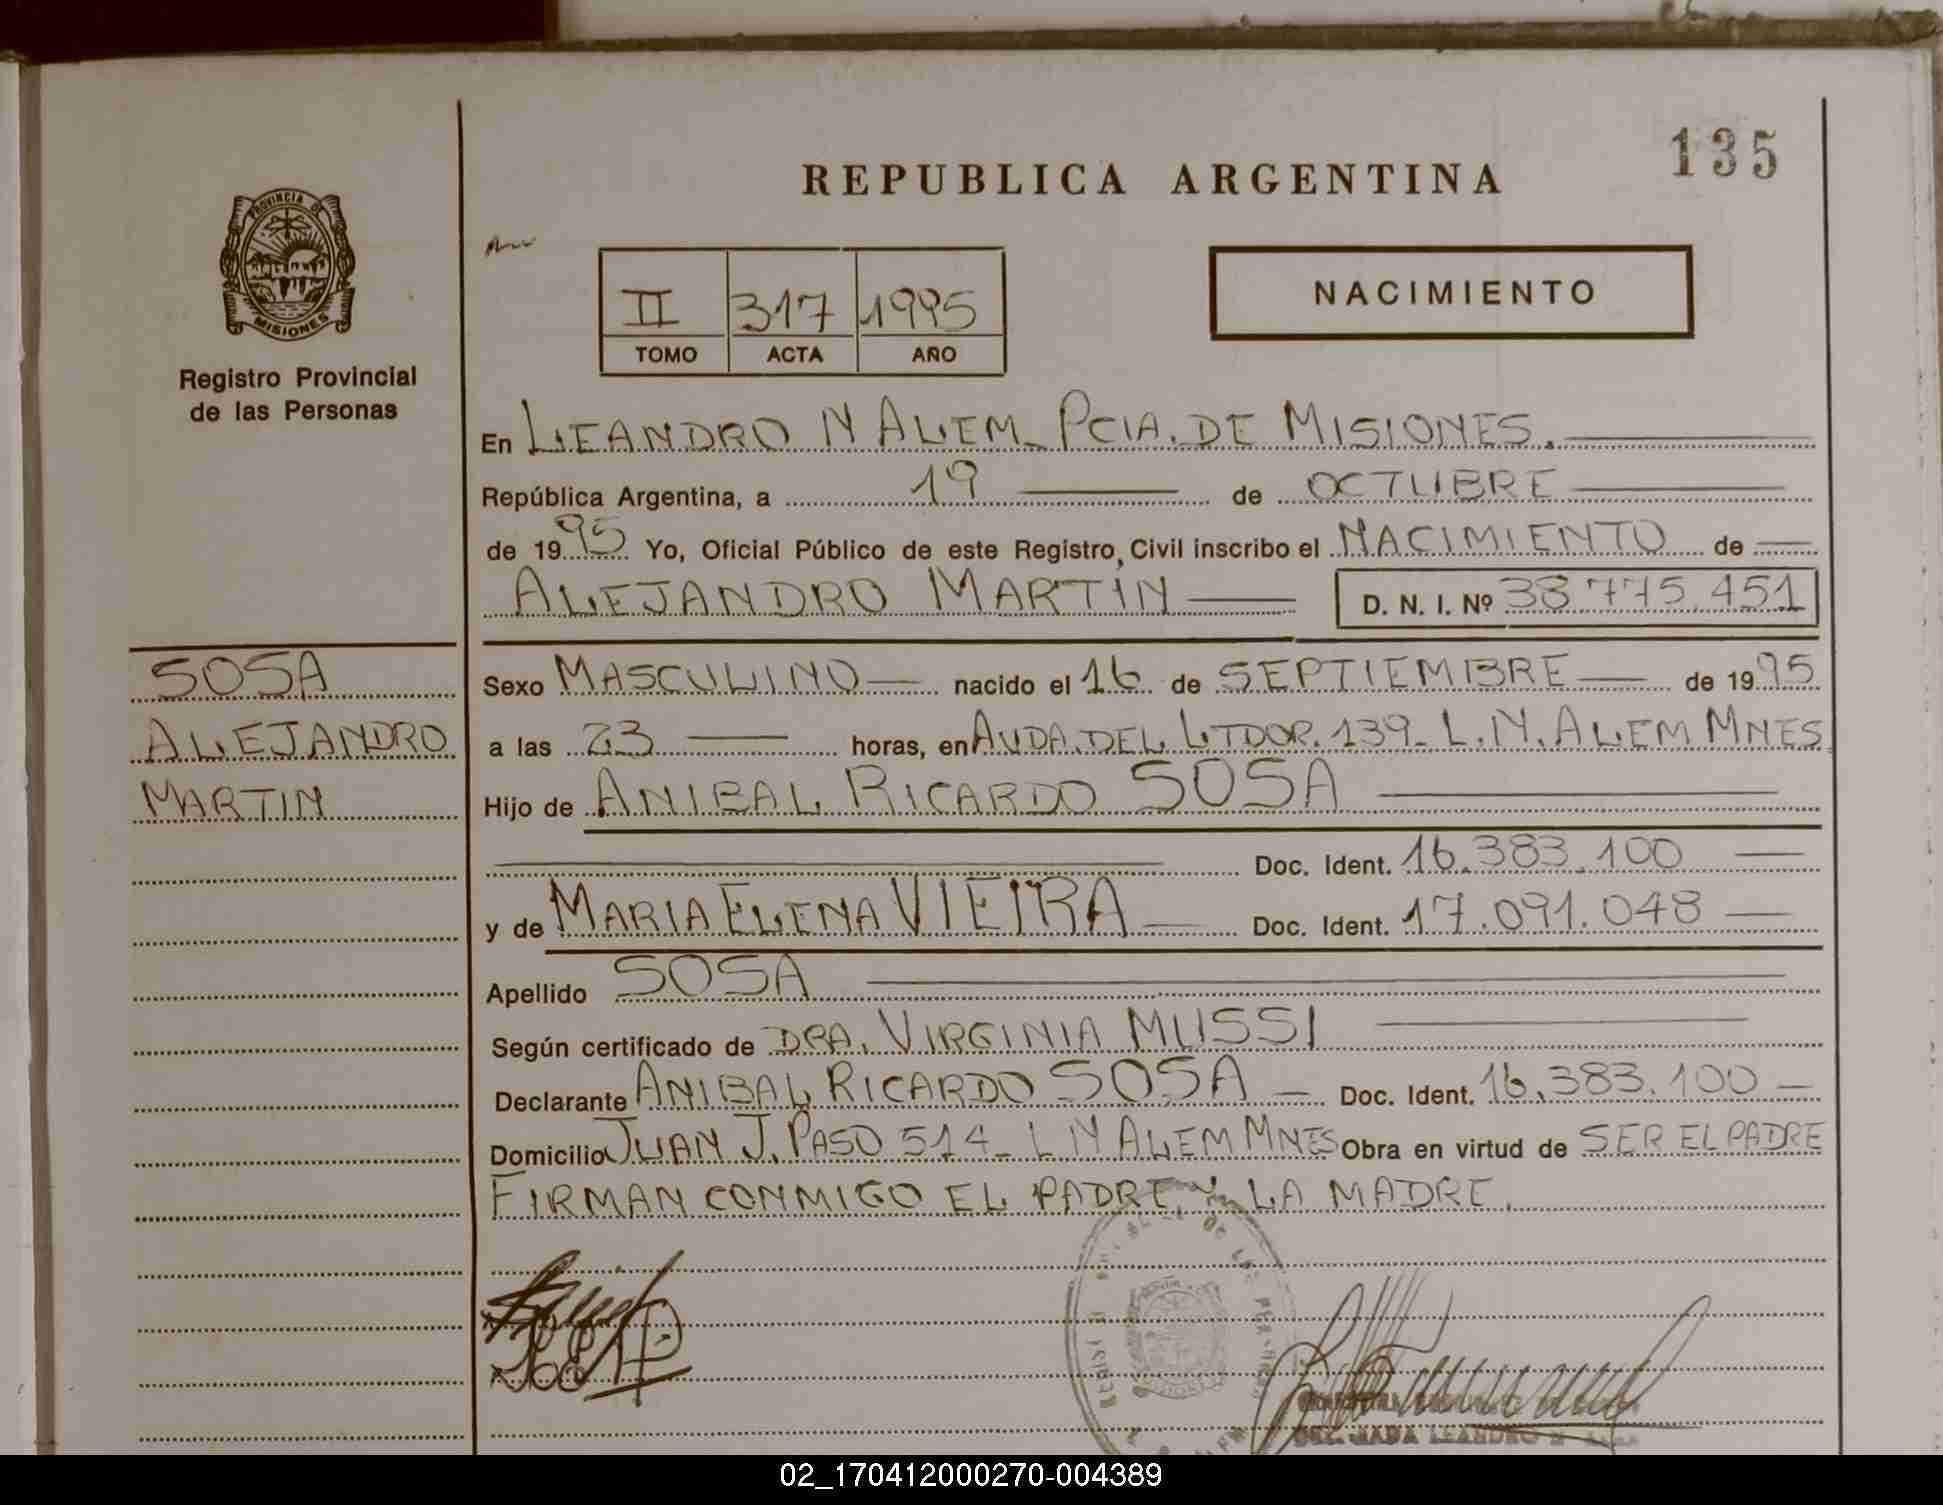 135
REPUBLICA ARGENTINA
PROVINCIA DE
MISIONES
Registro Provincial
de las Personas
II 317 1995
TOMO ACTA AÑO
NACIMIENTO
En LEANDRO N ALEM_ PCIA. DE MISIONES.
República Argentina, a 19 de OCTUBRE
de 1995 Yo, Oficial Público de este Registro Civil inscribo el NACIMIENTO de
ALEJANDRO MARTIN D. N. I. Nº 38.775.451
SOSA
ALEJANDRO
MARTIN
Sexo MASCULINO nacido el 16 de SEPTIEMBRE de 1995
a las 23 horas, en AVDA. DEL LTDOR. 139_ L. N. ALEM MNES
Hijo de ANIBAL RICARDO SOSA
Doc. Ident. 16.383.100
y de MARIA ELENA VIEIRA Doc. Ident. 17.091.048
Apellido SOSA
Según certificado de DRA. VIRGINIA MUSSI
Declarante ANIBAL RICARDO SOSA Doc. Ident. 16.383.100
Domicilio JUAN J. PASO 514_ L N ALEM MNES Obra en virtud de SER EL PADRE
FIRMAN CONMIGO EL PADRE Y LA MADRE.
02_170412000270-004389